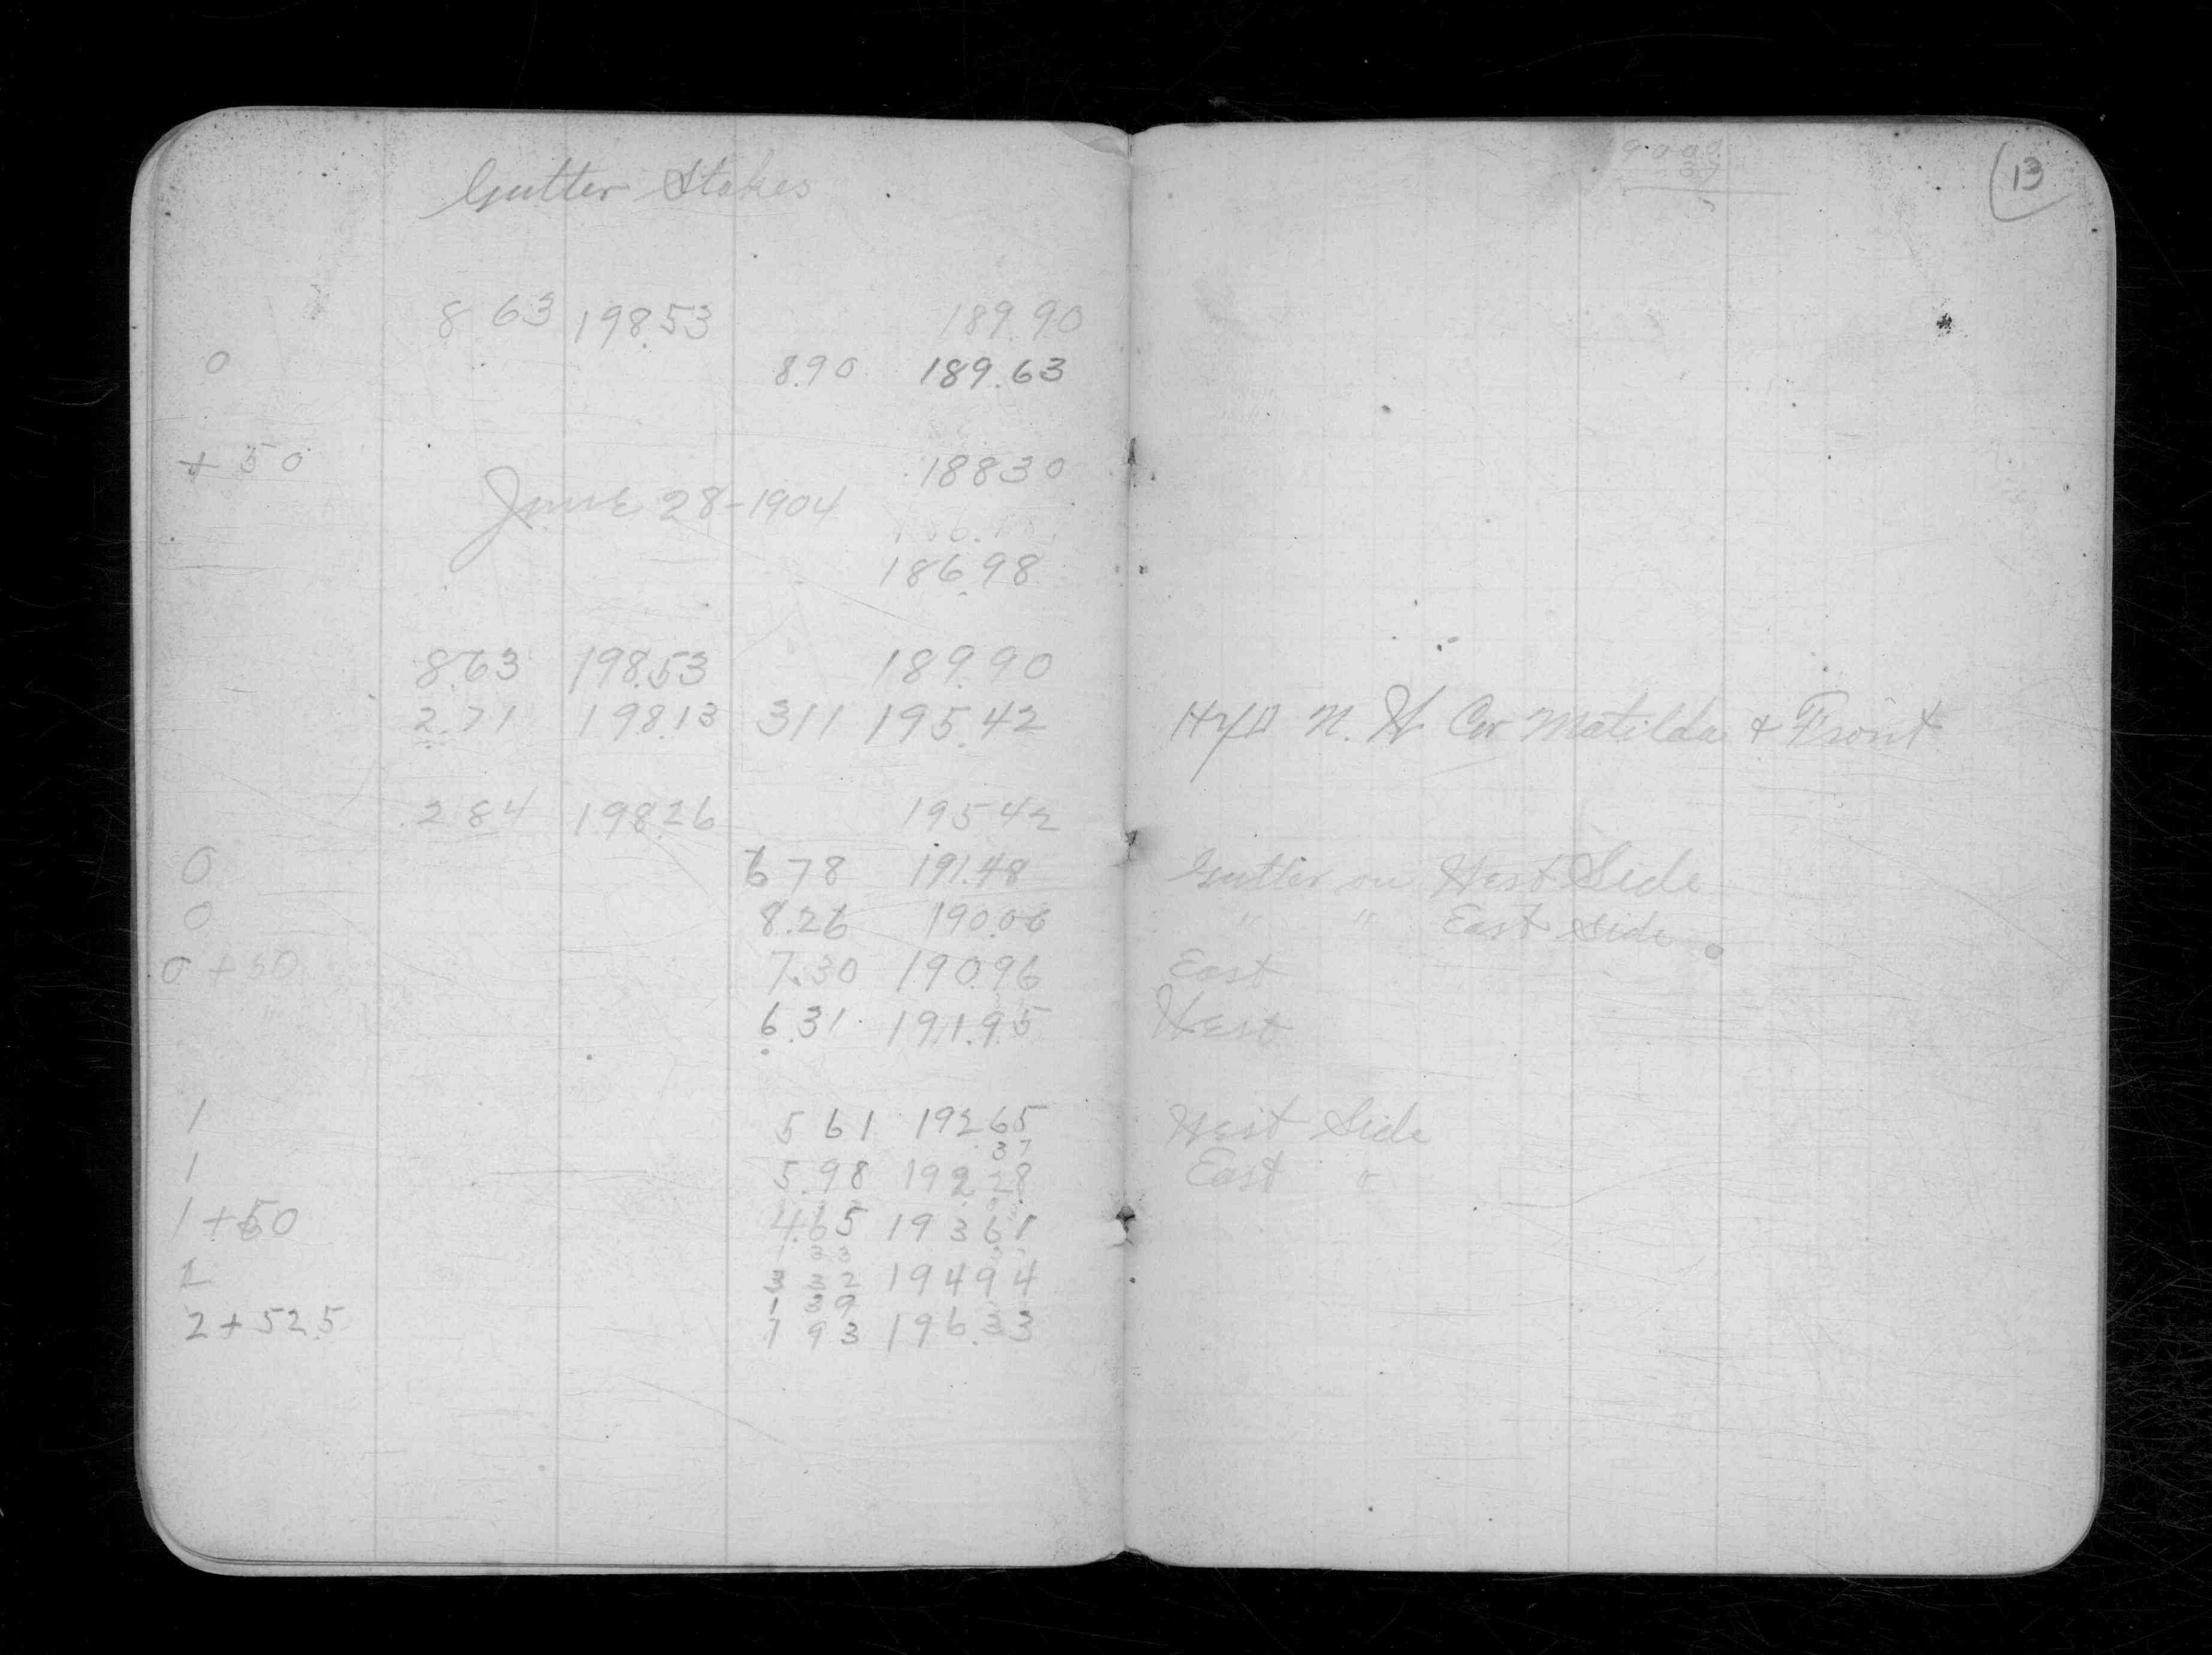 Gutter Stakes
8 63 198.53 189.90
0 8.90 189.63
+ 50 18830
June 28-1904
186.98
8.63 198.53 189.90
2.71 198.13 311 195.42 HYD N. W Cor Matilda & Front
2 84 198.26 195 42
0 6 78 191.48 Gutter on West Side
0 8.26 190.06 " " East Side
0 + 50 7.30 190.96 East
" 6.31 191.95 West
1 5 61 192.65 West Side
37
1 5.98 192 28 East "
1 + 50 4.65 193 61
1 33
2 3 32 194 94
1 39
2 + 52.5 1 93 196.33
9.00
37
13